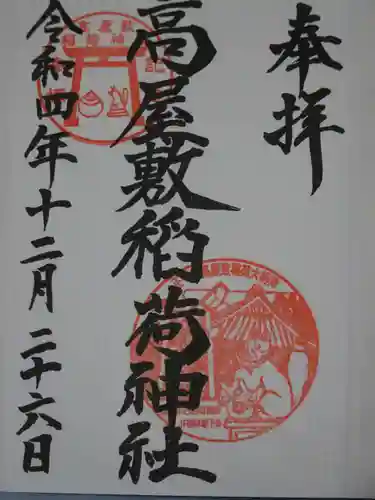 奉拝
高屋敷稲荷神社
令和四年十二月二十六日